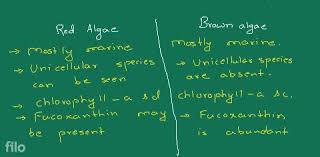 Red Algae
→ Mostly marine
→ Unicellular species
can be seen
→ chlorophyll - a & d
→ Fucoxanthin may
be present
Brown algae
Mostly marine.
→ Unicellular species
are absent.
chlorophyll - a & c.
→ Fucoxanthin
is abundant
filo